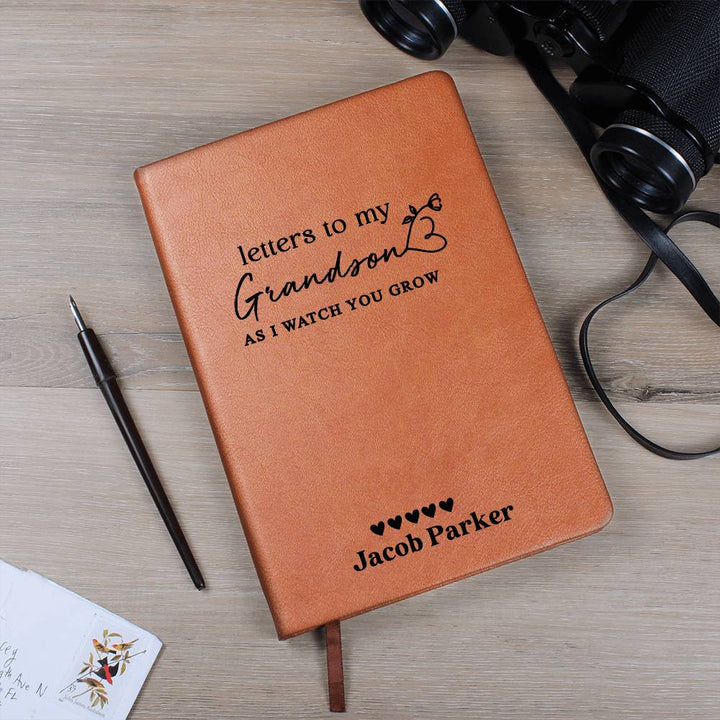 letters to my
Grandson
AS I WATCH YOU GROW
Jacob Parker
Ave N
FL